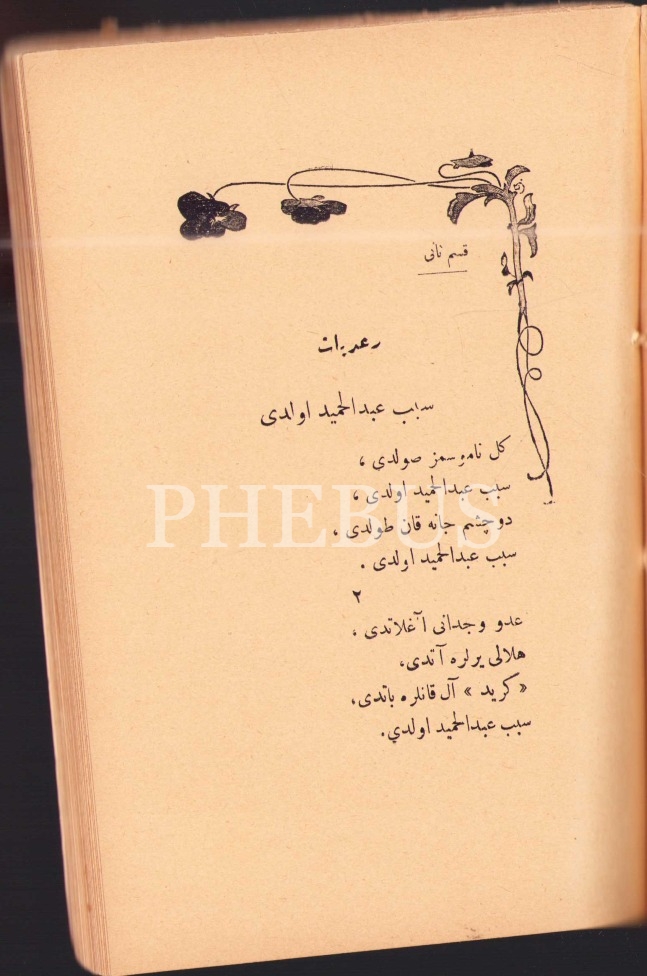 قسم ثانی
رعدیات
سبب عبدالحمید اولدی
كل ناموسمز صولدی ،
سبب عبدالحمید اولدی ،
دوچشم حانه قان طولدی ،
سبب عبدالحمید اولدی .
٢
عدو وجدانی آغلاتدی ،
هلالی یرلره آتدی،
« كرید » آل قانلره باتدی،
سبب عبدالحمید اولدي.
PHEBUS